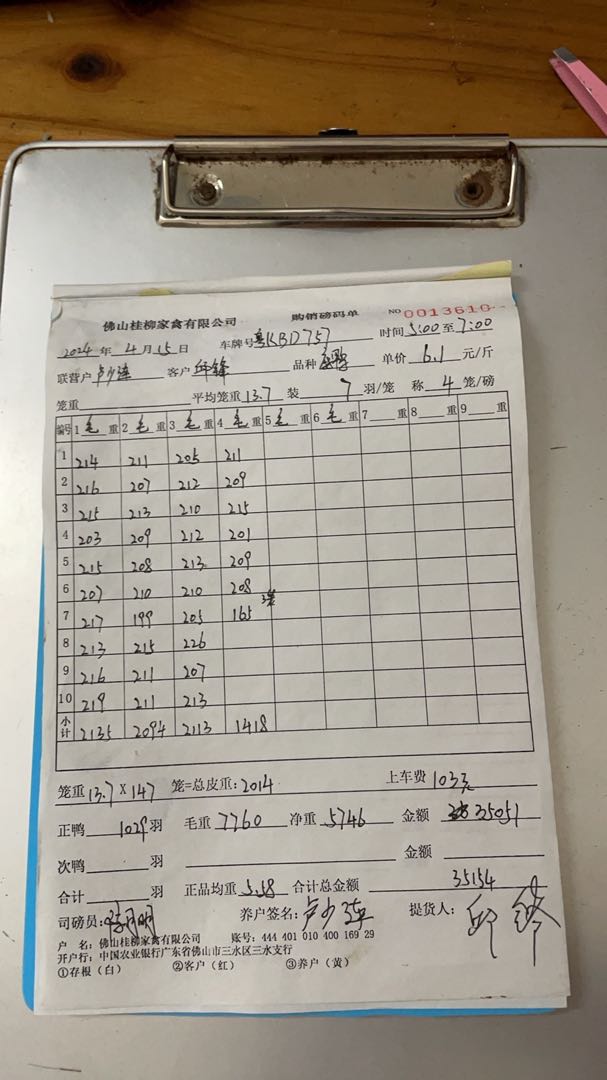 佛山桂柳家禽有限公司 购销磅码单 NO 0013610
2024 年 4 月 15 日 车牌号 粤KBD757 时间 5:00 至 7:00
联营户 卢少连 客户 邱锋 品种 单价 6.1 元/斤
笼重 平均笼重 13.7 装 7 羽/笼 称 4 笼/磅
编号 1 毛 重 2 毛 重 3 毛 重 4 毛 重 5 毛 重 6 毛 重 7 重 8 重 9 重
1 214 211 205 211
2 216 207 212 209
3 215 213 210 215
4 203 209 212 201
5 215 208 213 209
6 207 210 210 208
7 217 199 205 165 3笼
8 213 215 226
9 216 211 207
10 219 211 213
小计 2135 2094 2113 1418
笼重 13.7 X 147 笼=总皮重: 2014 上车费 103元
正鸭 1029 羽 毛重 7760 净重 5746 金额 35051
次鸭 羽 金额
合计 羽 正品均重 5.58 合计总金额 35154
司磅员: 养户签名: 卢少连 提货人: 邱锋
户 名: 佛山桂柳家禽有限公司 账号: 444 401 010 400 169 29
开户行: 中国农业银行广东省佛山市三水区三水支行
①存根（白） ②客户（红） ③养户（黄）